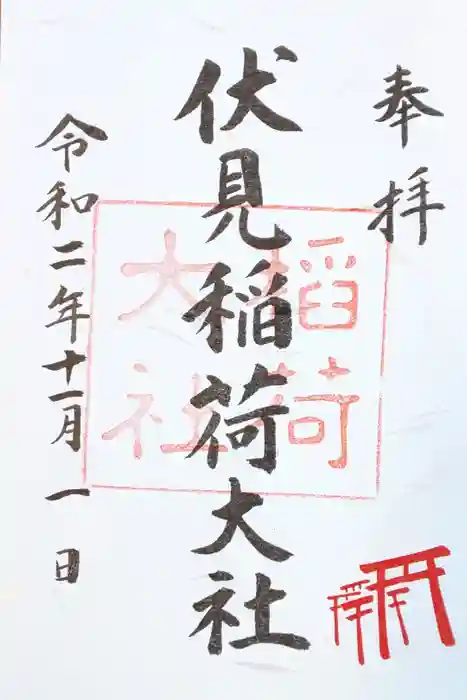 奉拝
伏見稲荷大社
令和二年十一月一日
稲荷
大社